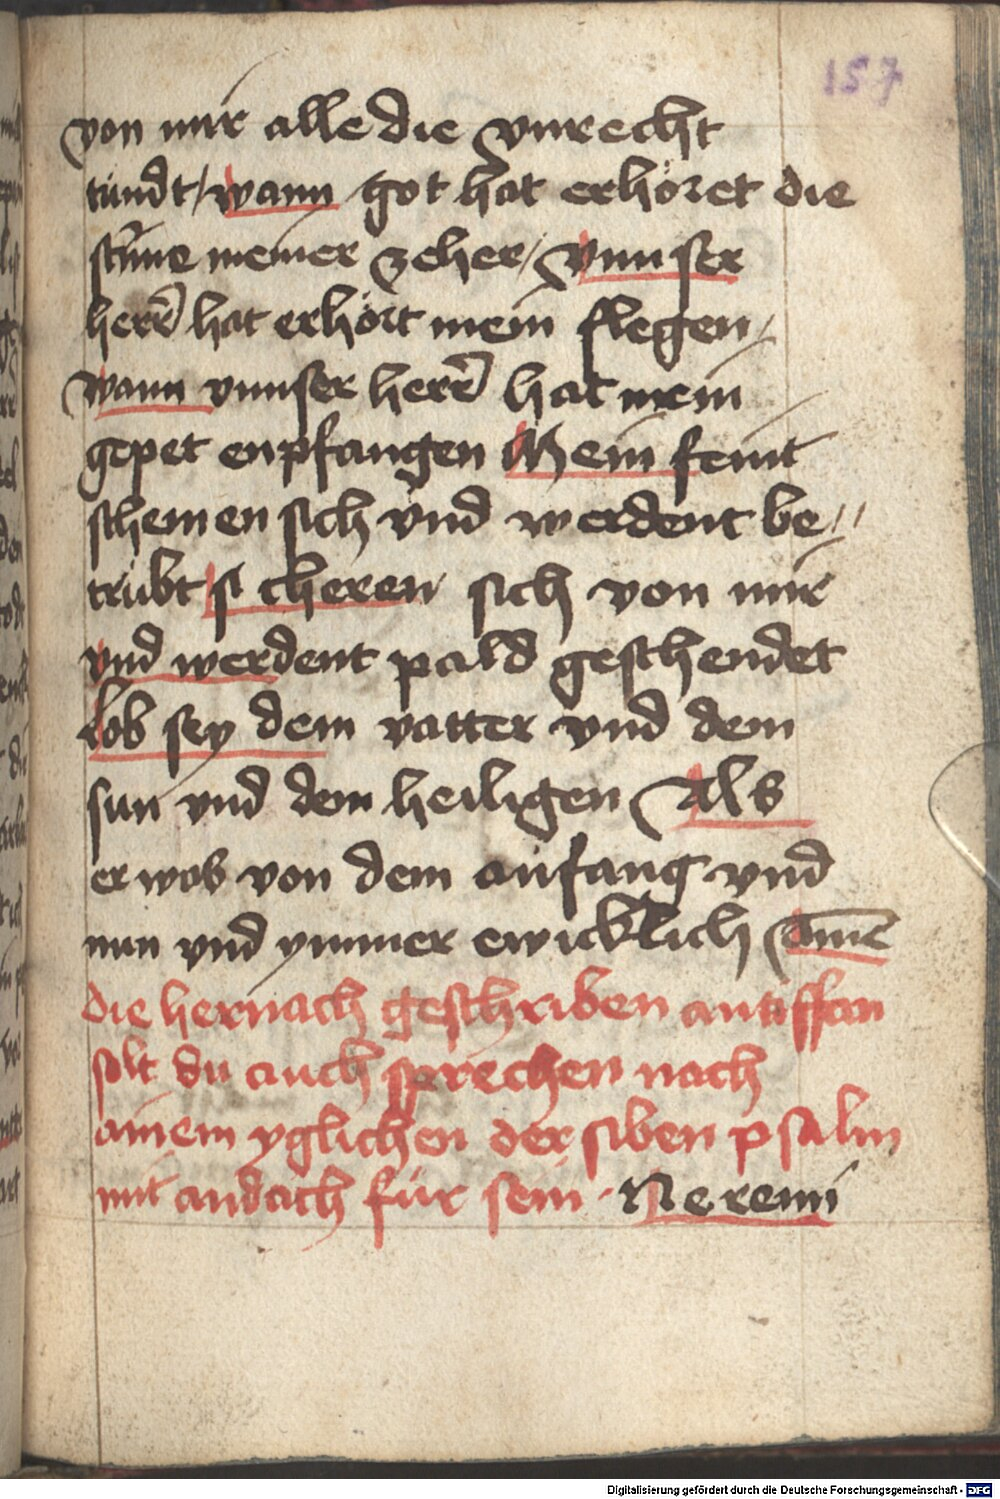 157
von mir alle die vnrecht
tündt / wann got hat erhöret die
stim̄e meiner zeher / vnnser
herr̄ hat erhört mein flegen /
wann vnnser herr̄ hat mein
gepet enpfangen Mein feint
schemen sich vnd werdent be //
trübt si cheren sich von mir
vnd werdent pald geschendet
lob sey dem vatter vnd dem
sun vnd dem heiligen Als
er wob von dem anfang vnd
nun vnd ymmer ewicklich Amē
die hernach geschriben antiffan
solt du auch sprechen nach
ainem yglichen der siben psalm
mit andach für sein · Ne remi
Digitalisierung gefördert durch die Deutsche Forschungsgemeinschaft - DFG